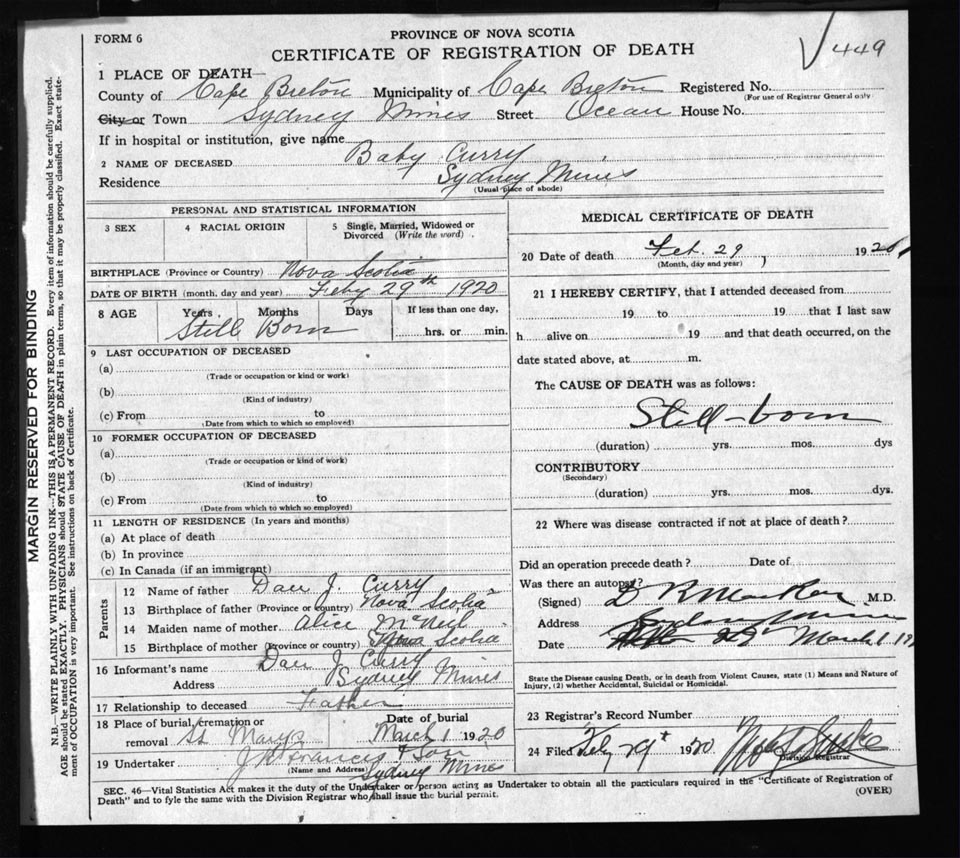 FORM 6
PROVINCE OF NOVA SCOTIA
CERTIFICATE OF REGISTRATION OF DEATH
449
1 PLACE OF DEATH—
County of Cape Breton Municipality of Cape Breton Registered No.
(For use of Registrar General only
City or Town Sydney Mines Street Ocean House No.
If in hospital or institution, give name
2 NAME OF DECEASED Baby Curry
Residence Sydney Mines
(Usual place of abode)
PERSONAL AND STATISTICAL INFORMATION
3 SEX 4 RACIAL ORIGIN 5 Single, Married, Widowed or Divorced (Write the word)
BIRTHPLACE (Province or Country) Nova Scotia
DATE OF BIRTH (month, day and year) Feby 29th 1920
8 AGE Years Months Days If less than one day,
Still Born hrs. or min.
9 LAST OCCUPATION OF DECEASED
(a)
(Trade or occupation or kind or work)
(b)
(Kind of industry)
(c) From to
(Date from which to which so employed)
10 FORMER OCCUPATION OF DECEASED
(a)
(Trade or occupation or kind of work)
(b)
(Kind of industry)
(c) From to
(Date from which to which so employed)
11 LENGTH OF RESIDENCE (In years and months)
(a) At place of death
(b) In province
(c) In Canada (if an immigrant)
Parents
12 Name of father Dan J. Curry
13 Birthplace of father (Province or country) Nova Scotia
14 Maiden name of mother Alice McNeil
15 Birthplace of mother (Province or country) Nova Scotia
16 Informant's name Dan J. Curry
Address Sydney Mines
17 Relationship to deceased Father
18 Place of burial, cremation or removal St Marys Date of burial March 1 1920
19 Undertaker J R Francis & Son
(Name and Address) Sydney Mines
MEDICAL CERTIFICATE OF DEATH
20 Date of death Feb. 29 1920
(Month, day and year)
21 I HEREBY CERTIFY, that I attended deceased from
19 to 19 that I last saw
h alive on 19 and that death occurred, on the
date stated above, at m.
The CAUSE OF DEATH was as follows:
Still-born
(duration) yrs. mos. dys
CONTRIBUTORY
(Secondary)
(duration) yrs. mos. dys.
22 Where was disease contracted if not at place of death?
Did an operation precede death? Date of
Was there an autopsy?
(Signed) M.D.
Address Sydney Mines
Date March 1
State the Disease causing Death, or in death from Violent Causes, state (1) Means and Nature of
Injury, (2) whether Accidental, Suicidal or Homicidal.
23 Registrar's Record Number
24 Filed Feby 29th 1920
Division Registrar
SEC. 46—Vital Statistics Act makes it the duty of the Undertaker or person acting as Undertaker to obtain all the particulars required in the "Certificate of Registration of
Death" and to fyle the same with the Division Registrar who shall issue the burial permit. (OVER)
MARGIN RESERVED FOR BINDING
N.B.—WRITE PLAINLY WITH UNFADING INK—THIS IS A PERMANENT RECORD. Every item of information should be carefully supplied.
AGE should be stated EXACTLY. PHYSICIANS should STATE CAUSE OF DEATH in plain terms, so that it may be properly classified. Exact state-
ment of OCCUPATION is very important. See instructions on back of Certificate.